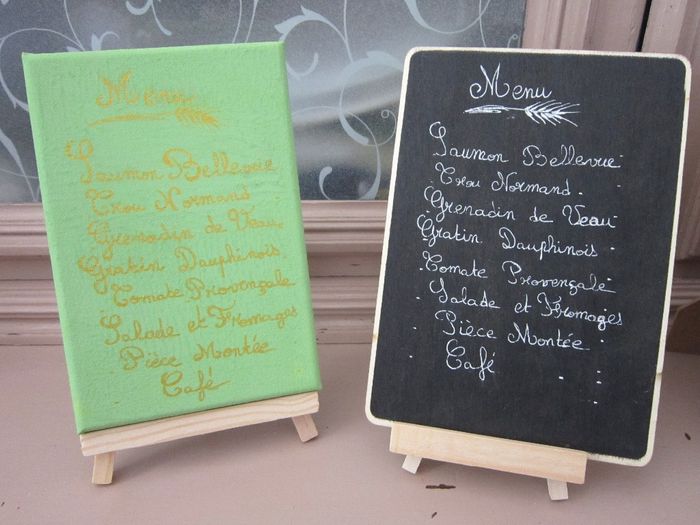 Menu
Saumon Bellevue
Trou Normand
Grenadin de Veau
Gratin Dauphinois
Tomate Provençale
Salade et Fromages
Pièce Montée
Café
Menu
Saumon Bellevue
Trou Normand.
Grenadin de Veau
Gratin Dauphinois
Tomate Provençale
Salade et Fromages
Pièce Montée
Café